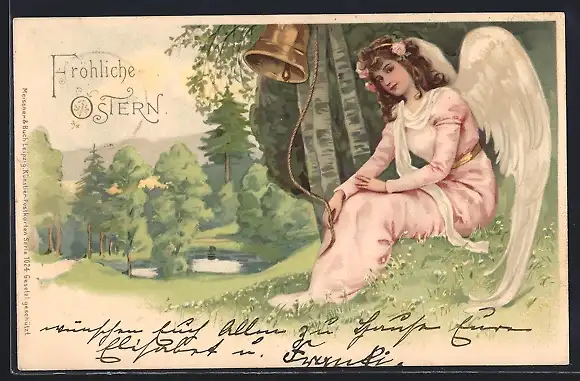 Fröhliche
OSTERN.
Meissner & Buch Leipzig, Künstler-Postkarten Serie 1024 Gesetzl. geschützt
wünschen Euch Allen zu Hause Eure
Elisabet u. Franki.